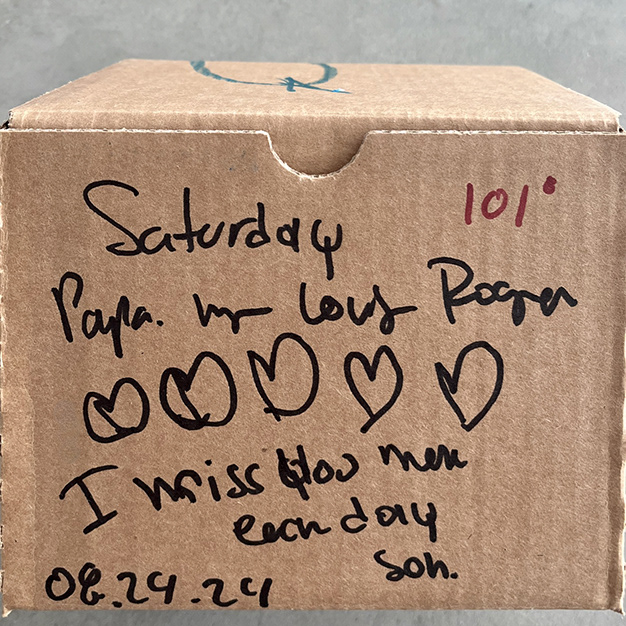 Saturday
101°
Papa. my love Roger
I miss you more
each day
son.
08.24.24